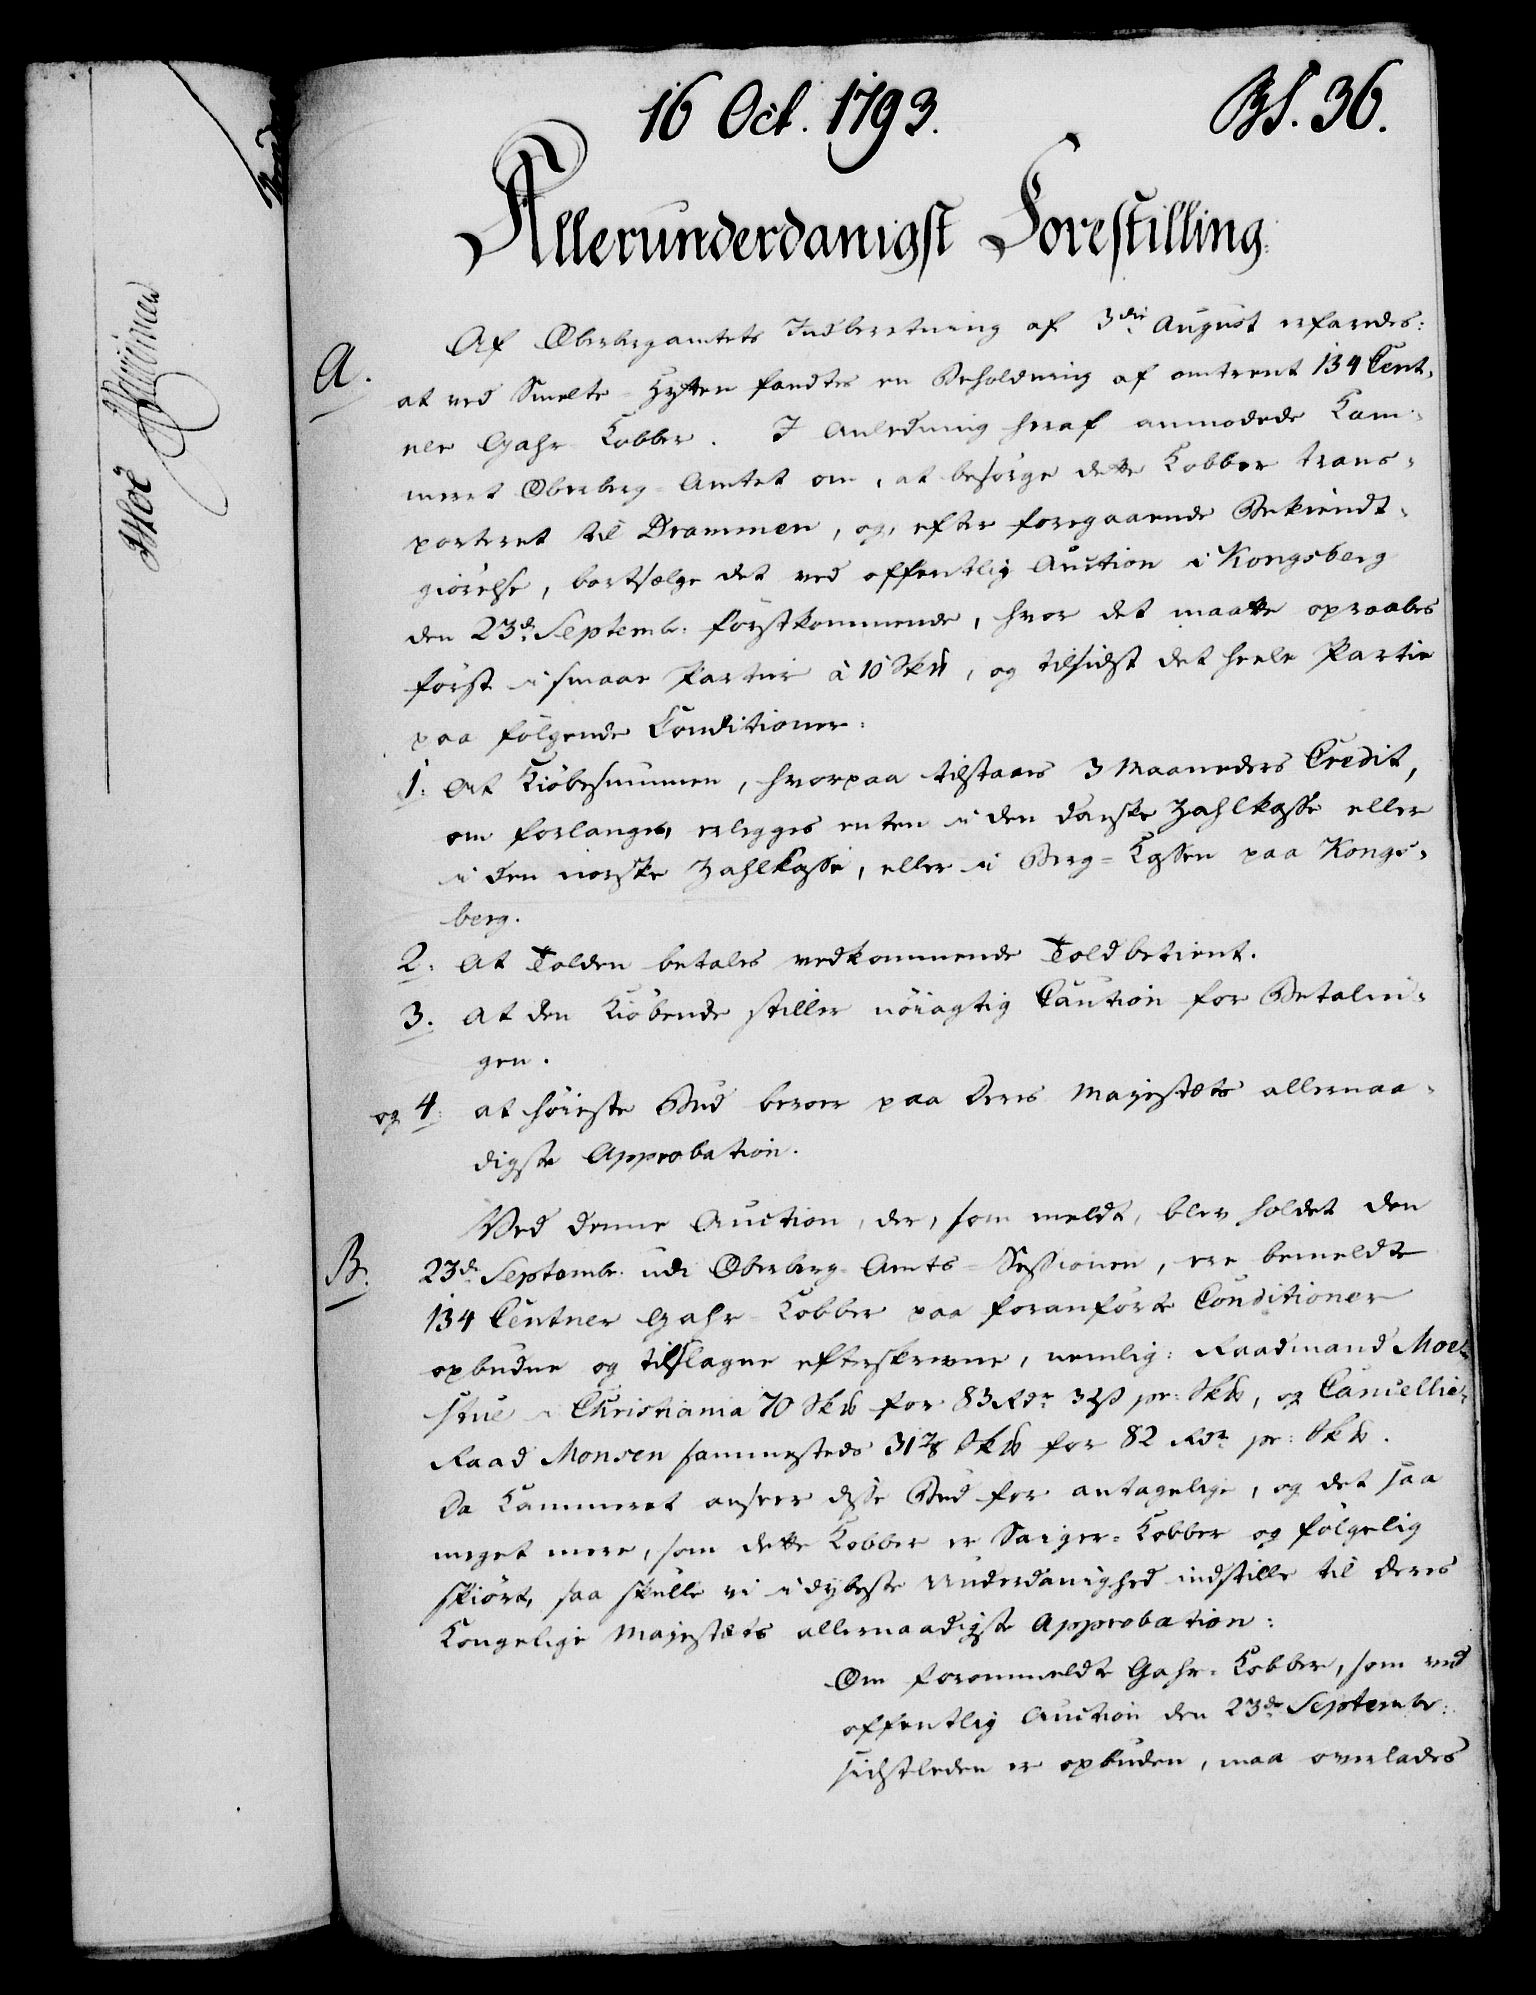 16 Oct. 1793. Bs. 36.
Allerunderdanigst Forestilling.
A. Af Oberbergamtets Indberetning af 3die August erfaredes:
at ved Smelte-Hytten fandtes en Beholdning af omtrent 134 Cent-
ner Gahr-Kobber. I Anledning heraf anmodede Kam-
meret Oberberg-Amtet om, at besørge dette Kobber trans-
porteret til Drammen, og, efter foregaaende Bekiendt-
giørelse, bortsælge det ved offentlig Auction i Kongsberg
den 23de Septembr: førstkommende, hvor det maatte opraabes
først i smaae Partier à 10 Sk℔, og tilsidst det heele Partie
paa følgende Conditioner:
1. At Kiøbesummen, hvorpaa tilstaaes 3 Maaneders Credit,
om forlanges, erlegges enten i den danske Zahlkasse eller
i den norske Zahlkasse, eller i Berg-Cassen paa Kongs-
berg.
2. At Tolden betales vedkommende Toldbetient.
3. At den Kiøbende stiller nöiagtig Caution for Betalin-
gen.
og 4. at høieste Bud beroer paa Deres Majestæts allernaa-
digste Approbation.
Ved denne Auction, der, som meldt, blev holdet den
B. 23de Septembr. udi Oberberg-Amts-Sessionen, ere bemeldte
134 Centner Gahr-Kobber paa foranførte Conditioner
opbudne og tilslagne efterskrevne, nemlig: Raadmand Moe-
stue i Christiania 70 Sk℔ for 83 Rdr 32 ß pr: Sk℔, og Cancellie-
Raad Monsen sammesteds 31 7/8 Sk℔ for 82 Rdr pr: Sk℔.
Da Kammeret anseer disse Bud for antagelige, og det saa
meget mere, som dette Kobber er Saiger-Kobber og følgelig
skiørt, saa skulle vi i dybeste Underdanighed indstille til Deres
Kongelige Majestæts allernaadigste Approbation:
Om forommeldte Gahr-Kobber, som ved
offentlig Auction den 23de Septembr:
sidstleden er opbuden, maa overlades